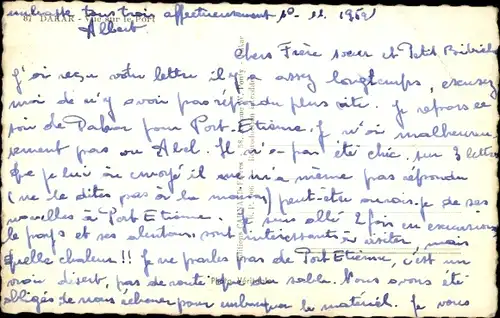 embrasse tous trois affectueusement 10-11.1959
Albert
81 DAKAR - Vue sur le Port
Chers Frère sœur et Petit
J'ai reçu votre lettre il y a assez longtemps, excusez
moi de n'y avoir pas répondu plus vite. Je repars ce
soir de Dakar pour Port-Etienne. Je n'ai malheureu
sement pas vu Abel. Il n'a pas été chic, sur 3 lettres
que je lui ai envoyé il ne m'a même pas répondu
(ne le dites pas à la maison) peut-être aurais-je de ses
nouvelles à Port Etienne. Je suis allé 2 fois en excursion
le pays et ses alentours sont intéressants à visiter, mais
quelle chaleur!! Je ne parles pas de Port Etienne, c'est un
vrai désert, pas de route que du sable. Nous avons été
obligés de nous échouer pour embarquer le matériel. Je vous